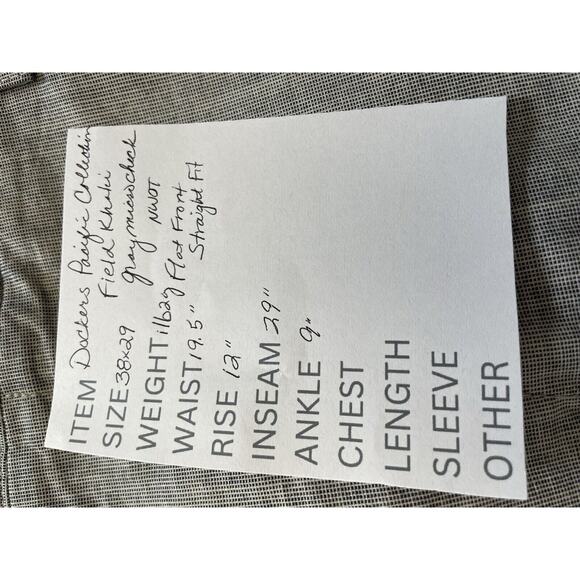 ITEM Dockers Pacific Collection
Field Khaki
SIZE 38x29 gray microcheck
WEIGHT 1lb NWOT
WAIST 19.5" Flat Front
Straight Fit
RISE 12"
INSEAM 29"
ANKLE 9"
CHEST
LENGTH
SLEEVE
OTHER